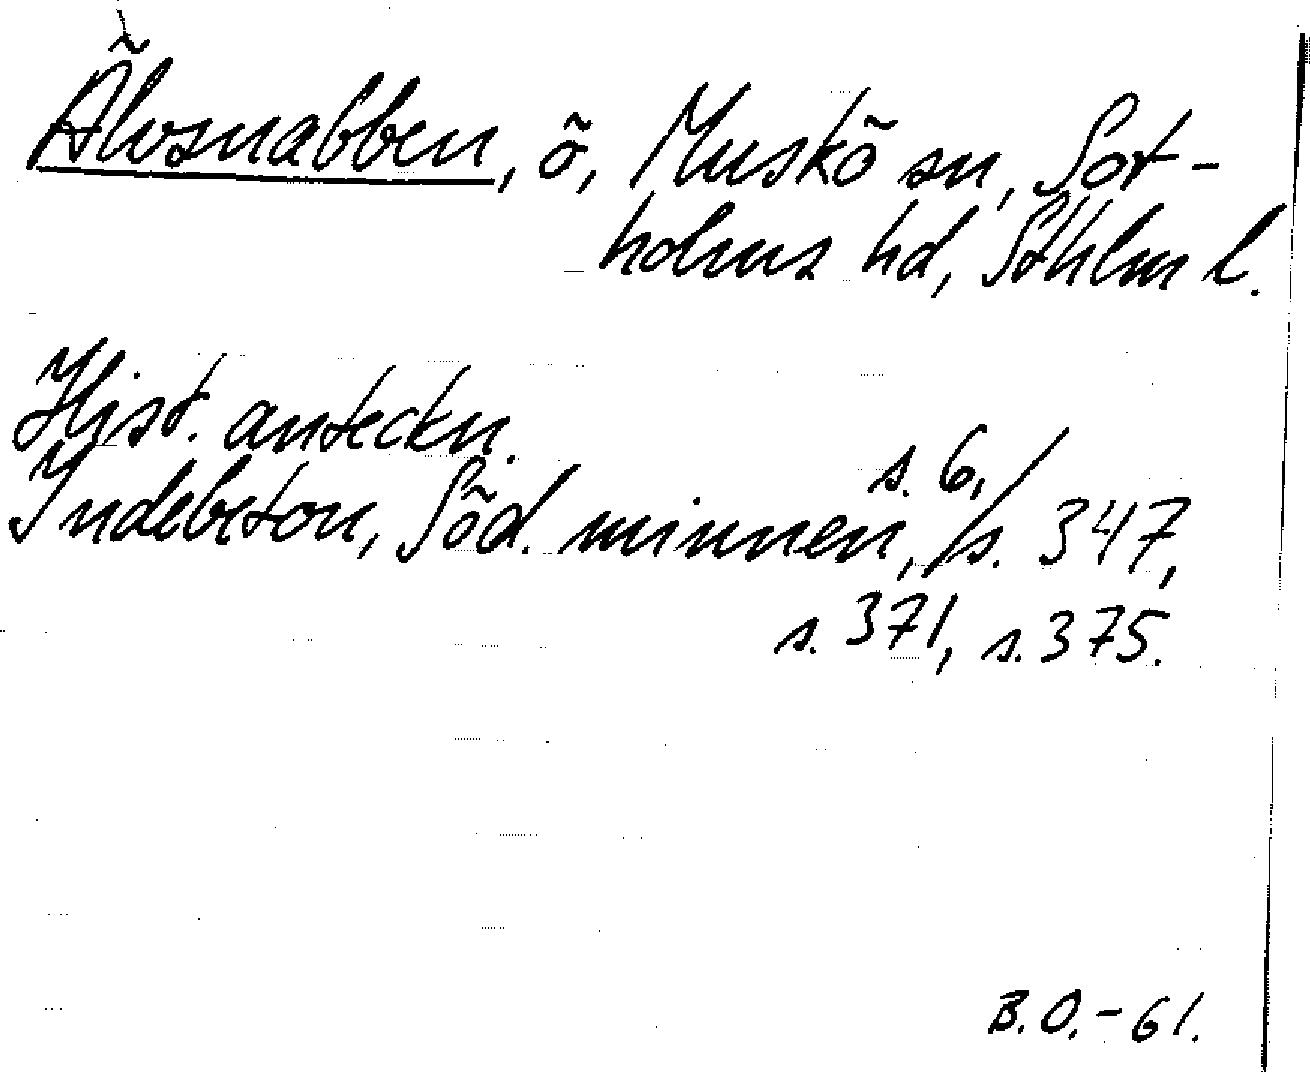 Älvsnabben, ö, Muskö sn, Sot-
holms hd, Sthlm l.
Hist. anteckn.
Indebetou, Söd. minnen, s. 6, s. 347,
s. 371, s. 375.
B.O.-61.